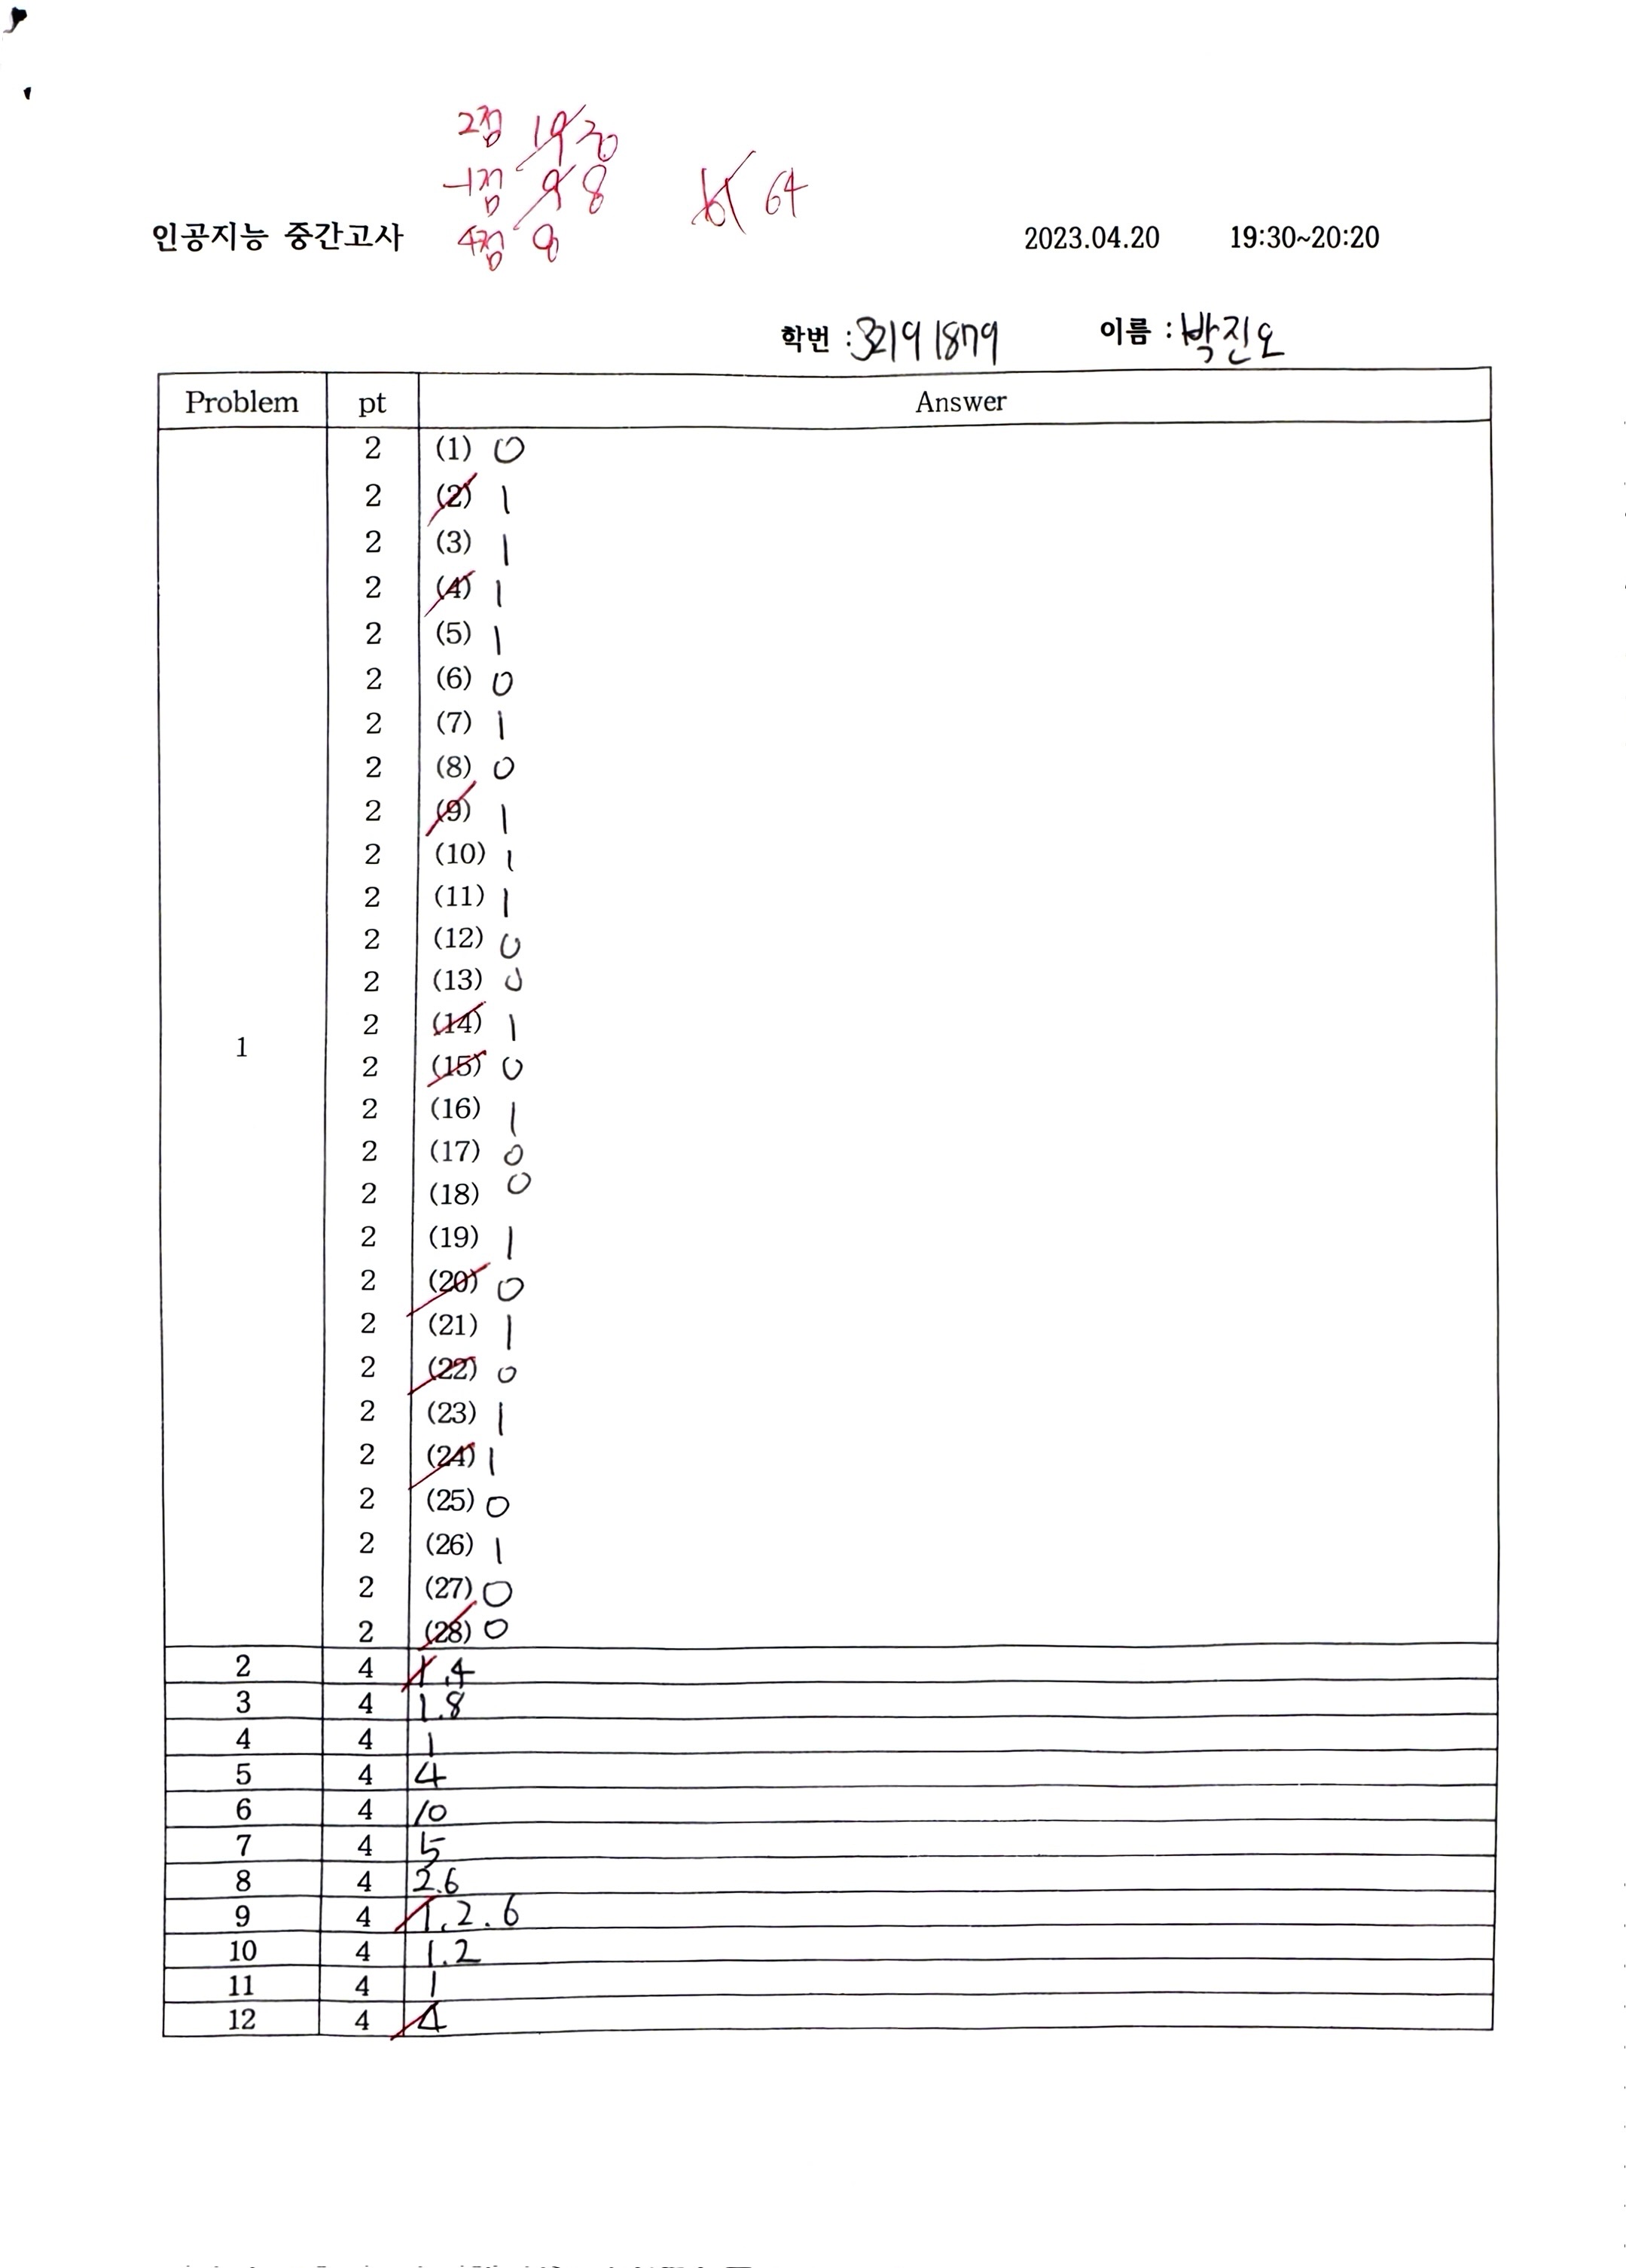 2점 19 20
-1점 9 8
64
인공지능 중간고사 4점 8 2023.04.20 19:30~20:20
학번 : 32191879 이름 : 박진오
Problem pt Answer
2 (1) 0
2 (2) 1
2 (3) 1
2 (4) 1
2 (5) 1
2 (6) 0
2 (7) 1
2 (8) 0
2 (9) 1
2 (10) 1
2 (11) 1
2 (12) 0
2 (13) 0
2 (14) 1
1 2 (15) 0
2 (16) 1
2 (17) 0
2 (18) 0
2 (19) 1
2 (20) 0
2 (21) 1
2 (22) 0
2 (23) 1
2 (24) 1
2 (25) 0
2 (26) 1
2 (27) 0
2 (28) 0
2 4 1.4
3 4 1.8
4 4 1
5 4 4
6 4 10
7 4 5
8 4 2.6
9 4 1.2.6
10 4 1.2
11 4 1
12 4 4